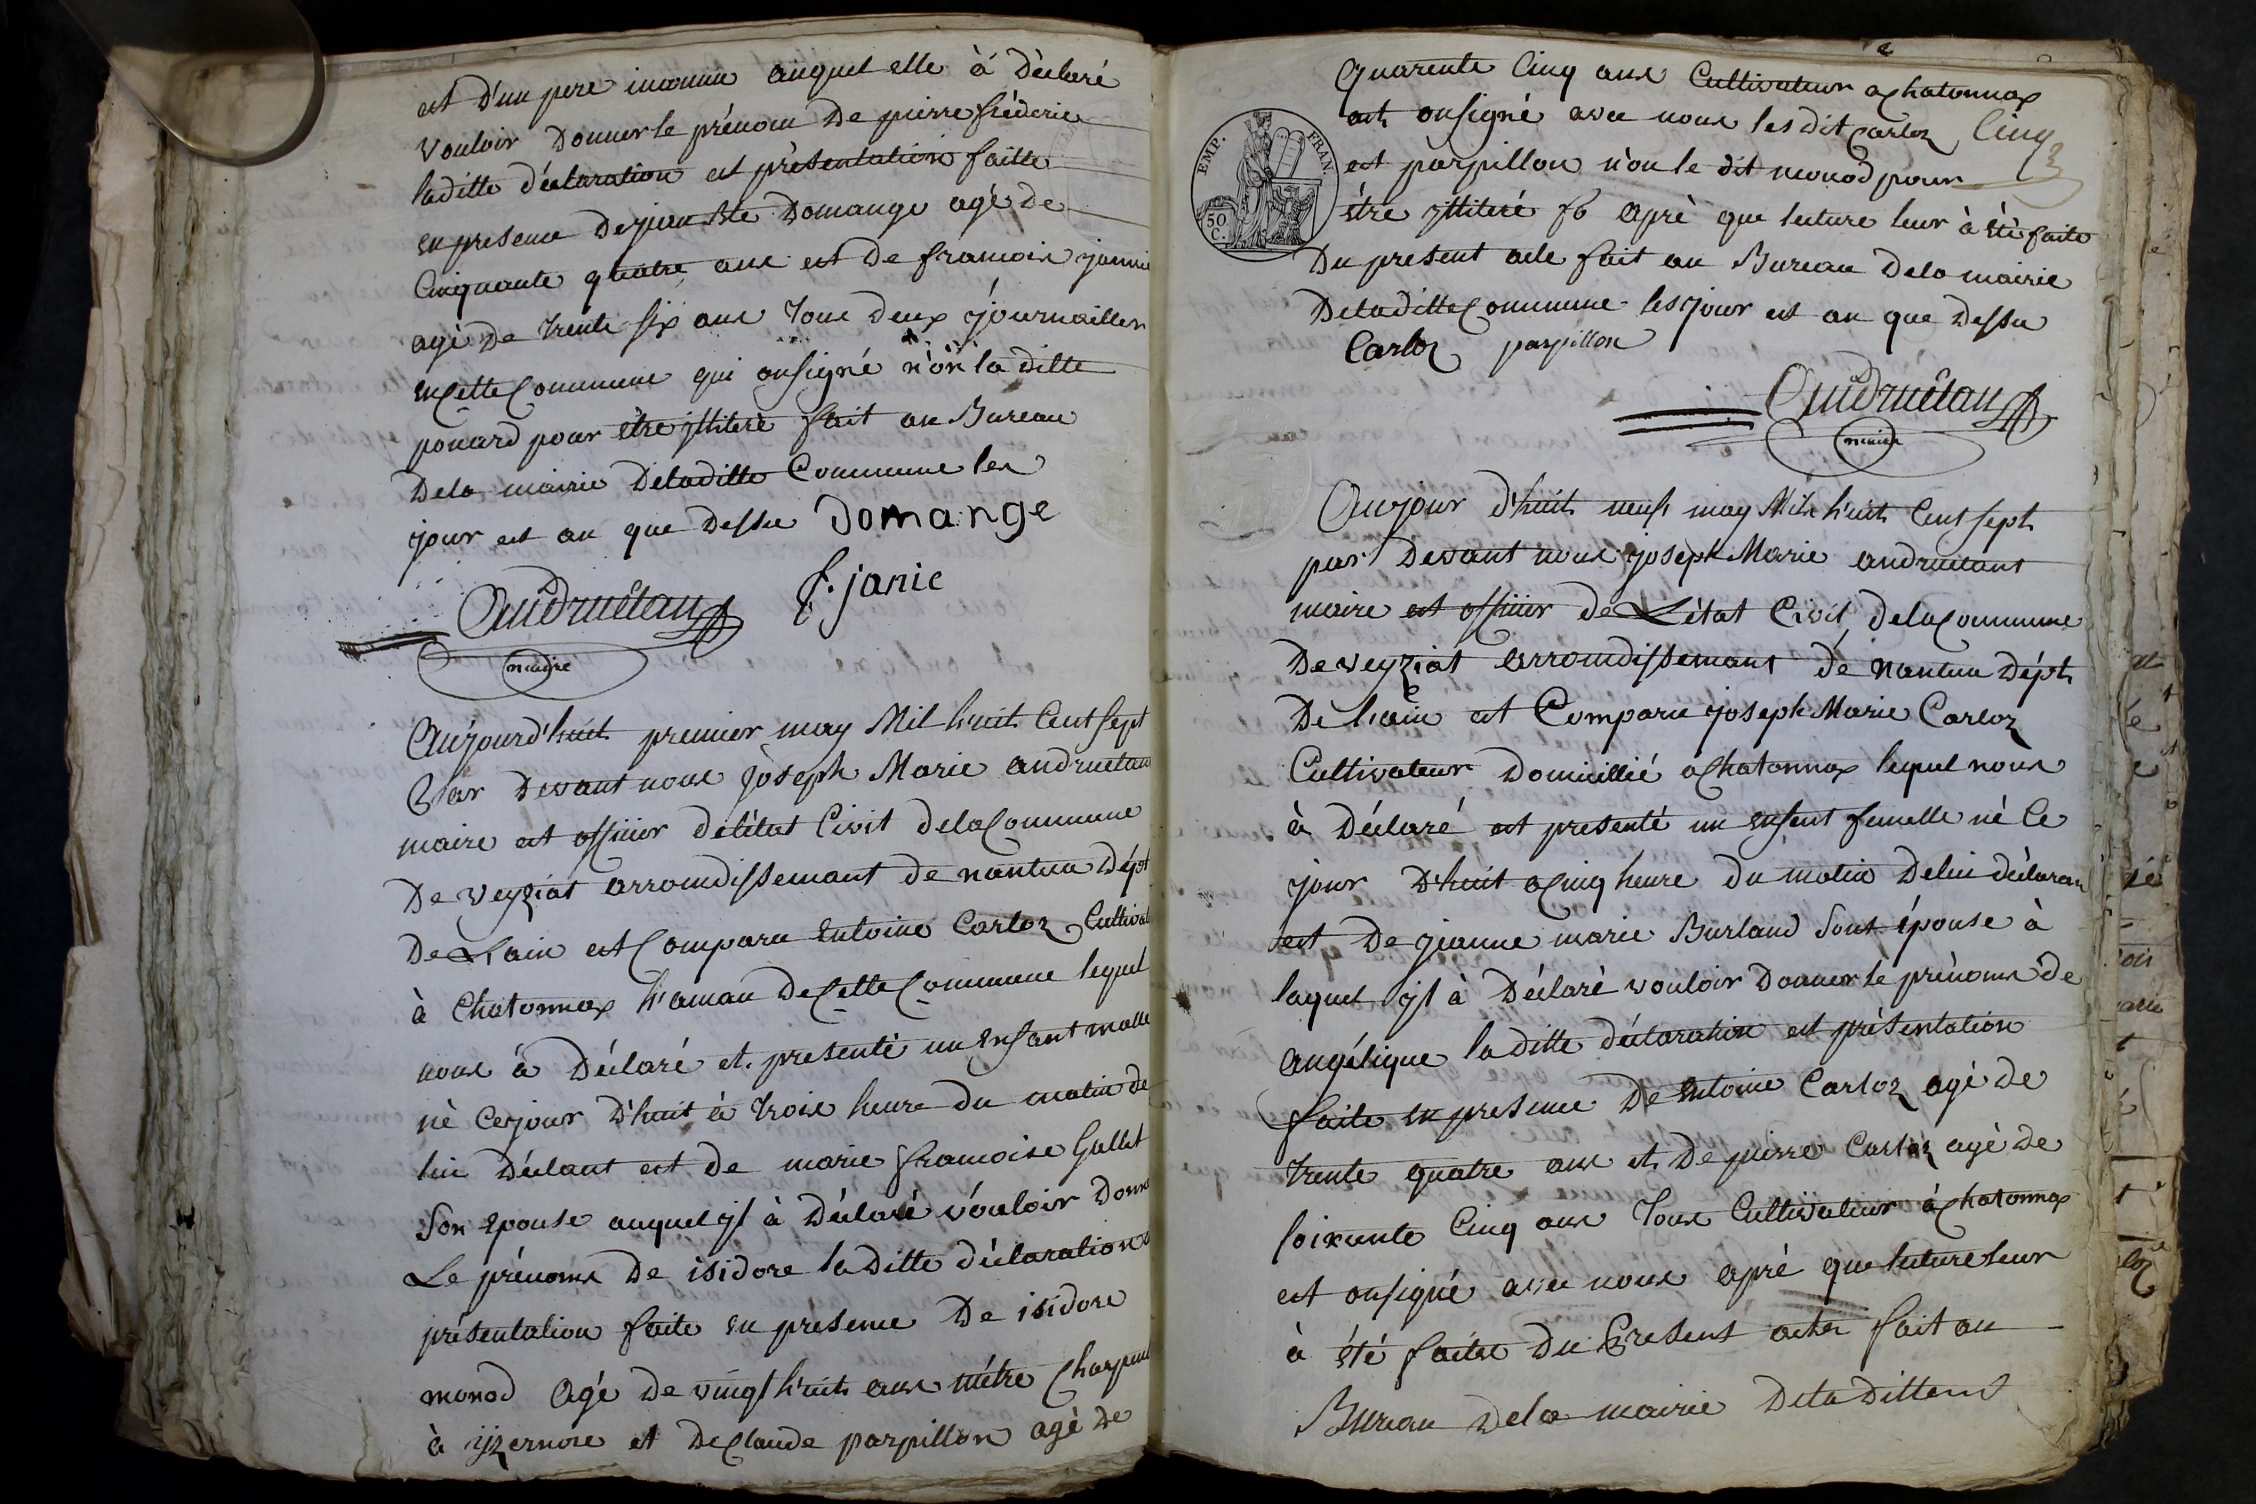 est d'un pere inconnu auquel elle à déclaré
vouloir donner le prénom de pierre fréderic
laditte déclaration est présentation faitte
en presence de jean Bte Domange agé de
Cinquante quatre ans est de francois janie
agé de trente six ans tous deux journaillier
en Cette Commune qui onsigné n'on la ditte
ponard pour être illiteré fait au Bureau
dela mairie deladitte Commune les
jour est an que dessu Domange
f. janie
Andruétan
maire
Aujourd'huit premier may Mil huit Cent sept
Par devant nous joseph Marie andruetan
maire est officier deletat Civil dela Commune
De veyziat arrondissemant de nantua dépt
De Lain est Comparu entoine Carloz Cultivat
à Chatonnax h'amau de Cette Commune lequel
nous à déclaré et presenté un enfant malle
né Cejour d'huit à trois heure du matin de
lui déclant est de marie francoise Gallet
Son epouse auquel yl à déclaré vouloir donne
Le prénoms de isidore la ditte déclaration
présentation faite en presence De isidore
monod agé de vingt huit ans mètre Charpen
à yzernore et de Claude parpillon agé de
Quarente Cinq ans Cultivateur a Chatonnax
ont onsigné avec nous les dit Carloz Cinq
est parpillon n'on le dit monod pour
étre yllitere fb aprè que lecture leur à été faite
Du present acte fait au Bureau dela mairie
Deladitte Commune les jour est an que dessu
Carloz parpillon
Andruétan
maire
EMP. FRAN.
50 C.
Aujour d'huit neuf may Mil huit Cent sept
par devant nous joseph Marie andruetant
maire est officier de L'état Civil dela Commune
De veyziat arrondissemant de nantua dépt
De l'ain est Comparu joseph Marie Carloz
Cultivateur domicillié a Chatonnax lequel nous
à déclaré est presenté un enfent femelle né Ce
jour d'huit a Cinq heure du matin delui déclaran
est De jeanne marie Burland Sont épouse à
laquel yl à déclaré vouloir donner le prénoms de
angélique la ditte déclaration est présentation
faite en presence De entoine Carloz agé de
trente quatre ans et de pierre Carloz agé de
soixante Cinq ans tous Cultivateur à Chatonnax
est onsigné avec nous apré que lecture leur
à été faite du Present acte fait au
Bureau dela mairie deladitte